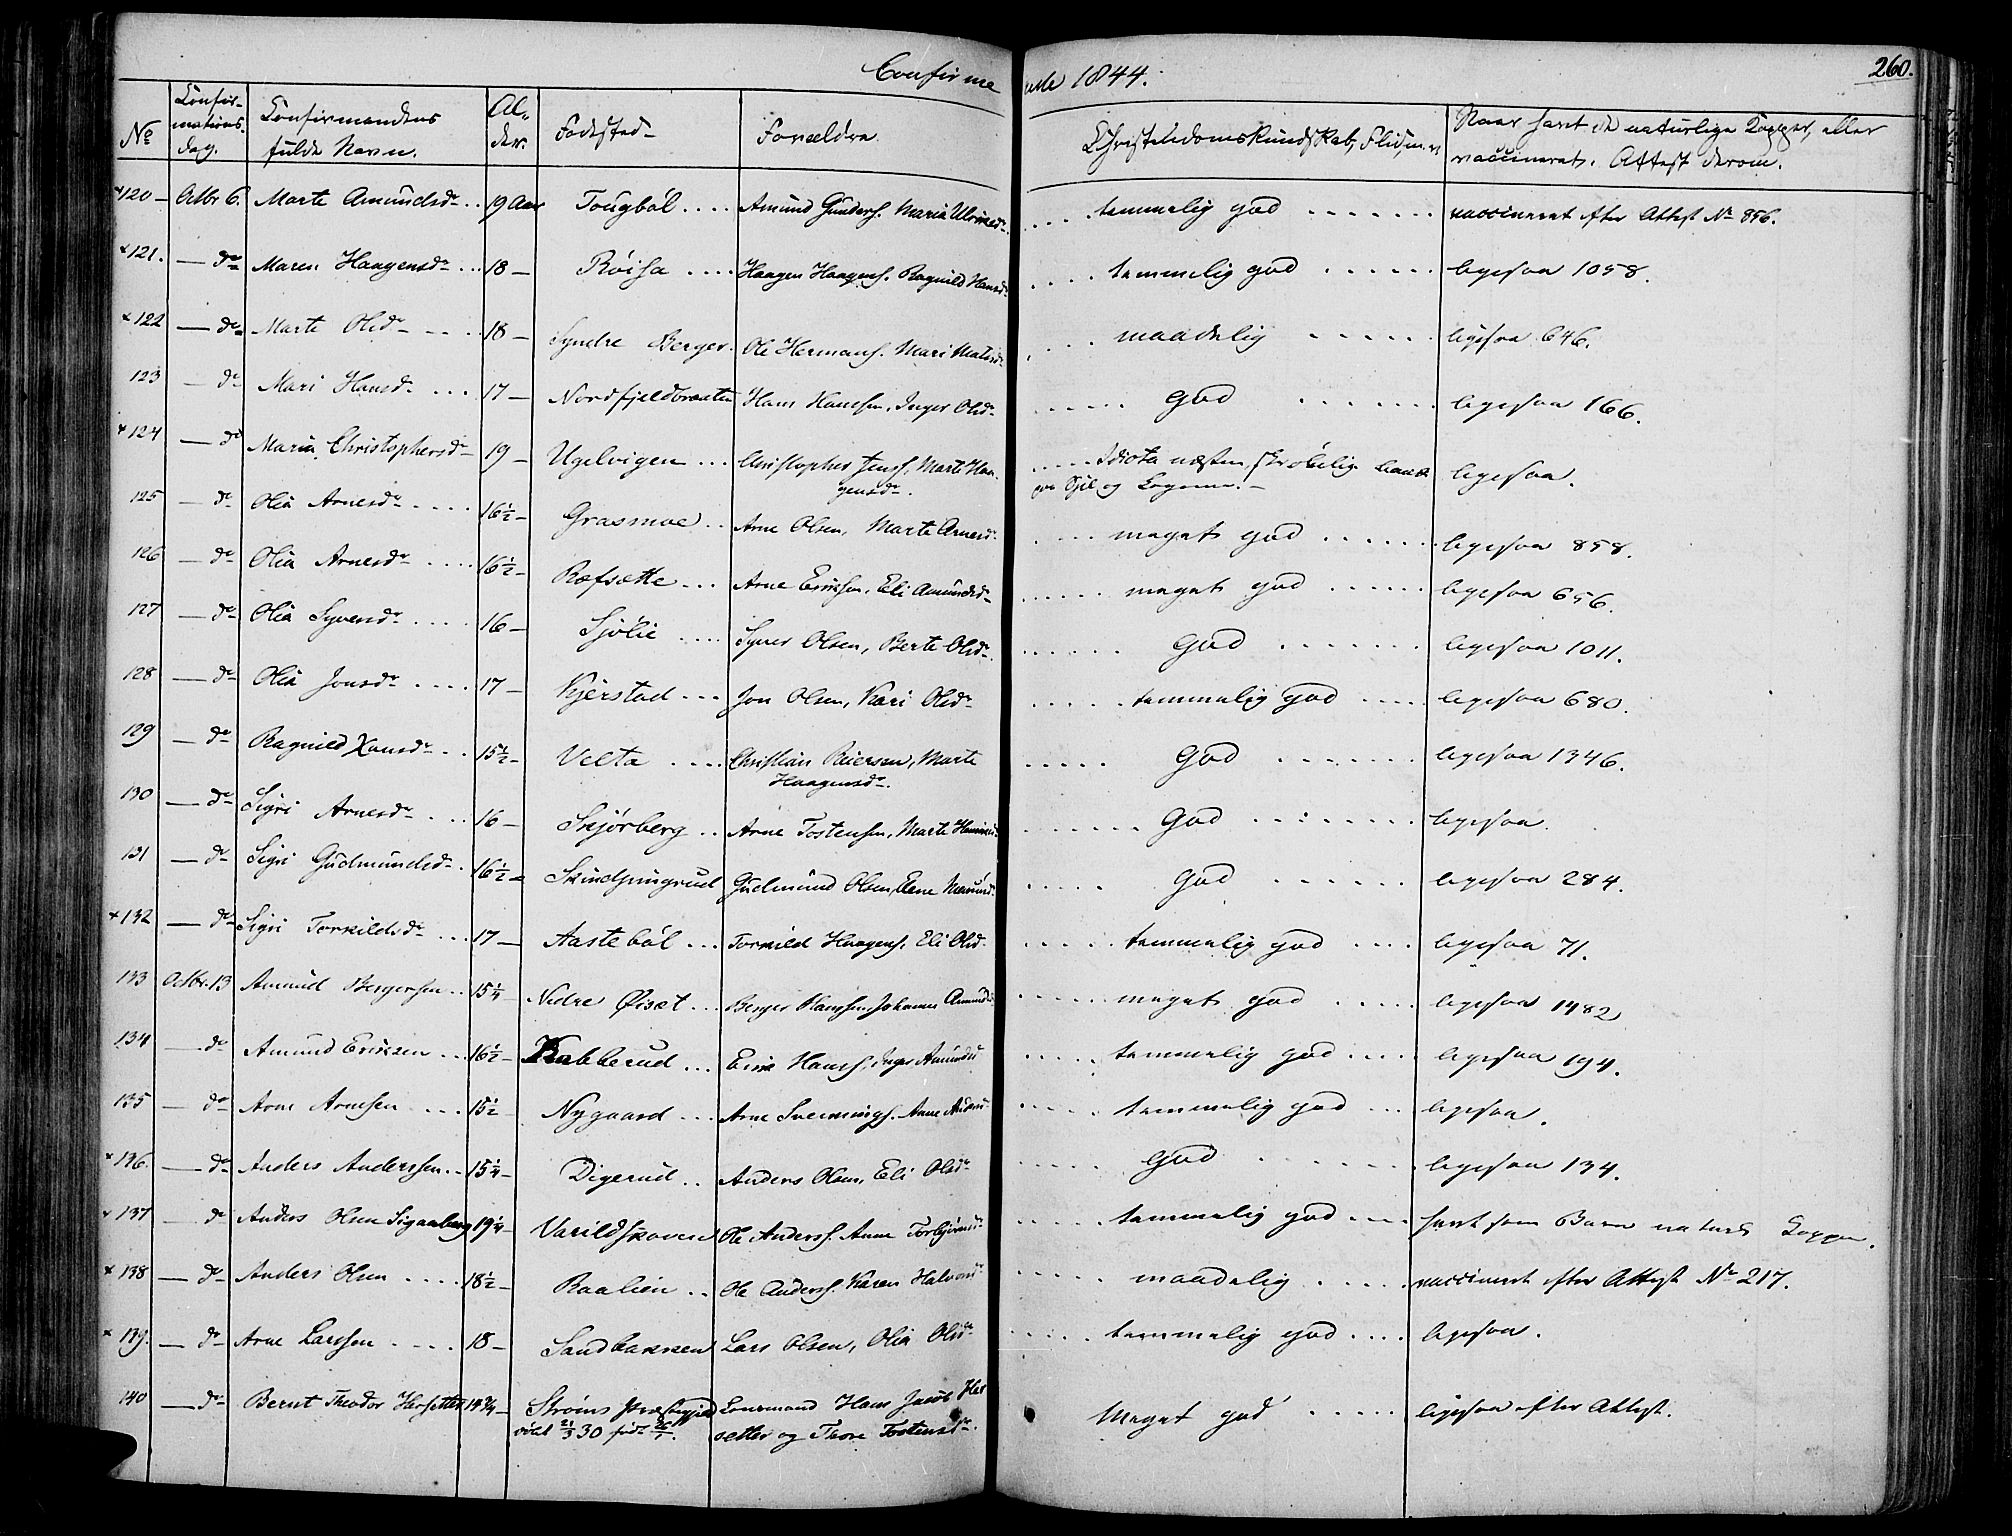 Confirmerede 1844.
260.
No Confirmations dag. Confirmandens fulde Navn. Alder. Fødested Forældre Christendomskundskab, Flid, m. v. Naar havt de naturlige Kopper, eller vaccineret. Attest derom.
×120 – Octbr 6. Marte Amundsdr 19 Aar Tougböl Amund Gunders. Maria temmelig god vaccineret efter Attest No 856.
×121. — do Maren Haagensdr 18 – Röisa Haagen Haagens. Ragnild Hansdr temmelig god ligesaa 1058.
×122 — do Marte Olsdr 18 – Syndre Berger Ole Hermans. Mari maadelig ligesaa 646.
123 — do Mari Hansdr 17 – Nordfjeldbraaten Hans Hansen, Inger Olsdr god ligesaa 166.
×124 — do Maria Christophersdr 19 – Ugelvigen Christopher Jenss. Marte Haagensdr. Idiota næsten, skröbelig baade paa Sjæl og Legeme. – ligesaa.
125 — do Olia Arnesdr 16½ – Grasmoe Arne Olsen, Marte Arnesdr meget god ligesaa 858.
126 — do Olia Arnesdr 16½ – Ræfsætte Arne Eriksen, Eli Amundsdr meget god ligesaa 656.
127 — do Olia Syversdr 16 – Sjölie Syver Olsen, Berte Olsdr god ligesaa 1011.
128 — do Olia Jonsdr 17 – Kjerstad Jon Olsen, Kari Olsdr temmelig god ligesaa 680.
129 — do Ragnild 15½ – Velta Christian Reiersen, Marte Haagensdr. god ligesaa 1346.
130 — do Sigri Arnesdr 16 – Skjörberg Arne Tostensen, Marte god ligesaa.
131 — do Sigri Gudmundsdr 16½ – Gudmund Olsen, god ligesaa 284.
×132 — do Sigri Torkildsdr 17 — Aasteböl Torkild Haagens. Eli Olsd. temmelig god ligesaa 71.
133 Octbr. 13 Amund Bergersen 15¼ – Nedre Øisæt Berger Hanssen, Johanne Amundsd meget god ligesaa 1482
134 — do Amund Eriksen 16½ – Kabberud Erik Hanss, Inger Amundsd temmelig god ligesaa 194.
135 — do Arne Arnesen 15½ – Nygaard Arne Svennings. Anne temmelig god ligesaa.
×136. — do Anders Anderssen 15¼ – Digerud Anders Olsen, Eli Olsdr god ligesaa 134.
×137 — do Anders Olsen 19¼ – Varildskoven Ole Anderss. Anne temmelig god havt som Barn naturl. Kopper.
×138 — do Anders Olsen 18½ – Raalien Ole Anderss. Karen Halvorsd maadelig vaccineret efter Attest No 217.
×139. — do Arne Larssen 18 – Sandbakken Lars Olsen, Olia Olsdr temmelig god ligesaa.
140 — do Bernt Theodor Hersetter 14¾ – Ströms Præstegjeld döbt 21/3 30 föd Lensmand Hans Jacob Hersetter og Thore Tostensdr. Meget god ligesaa efter Attest.